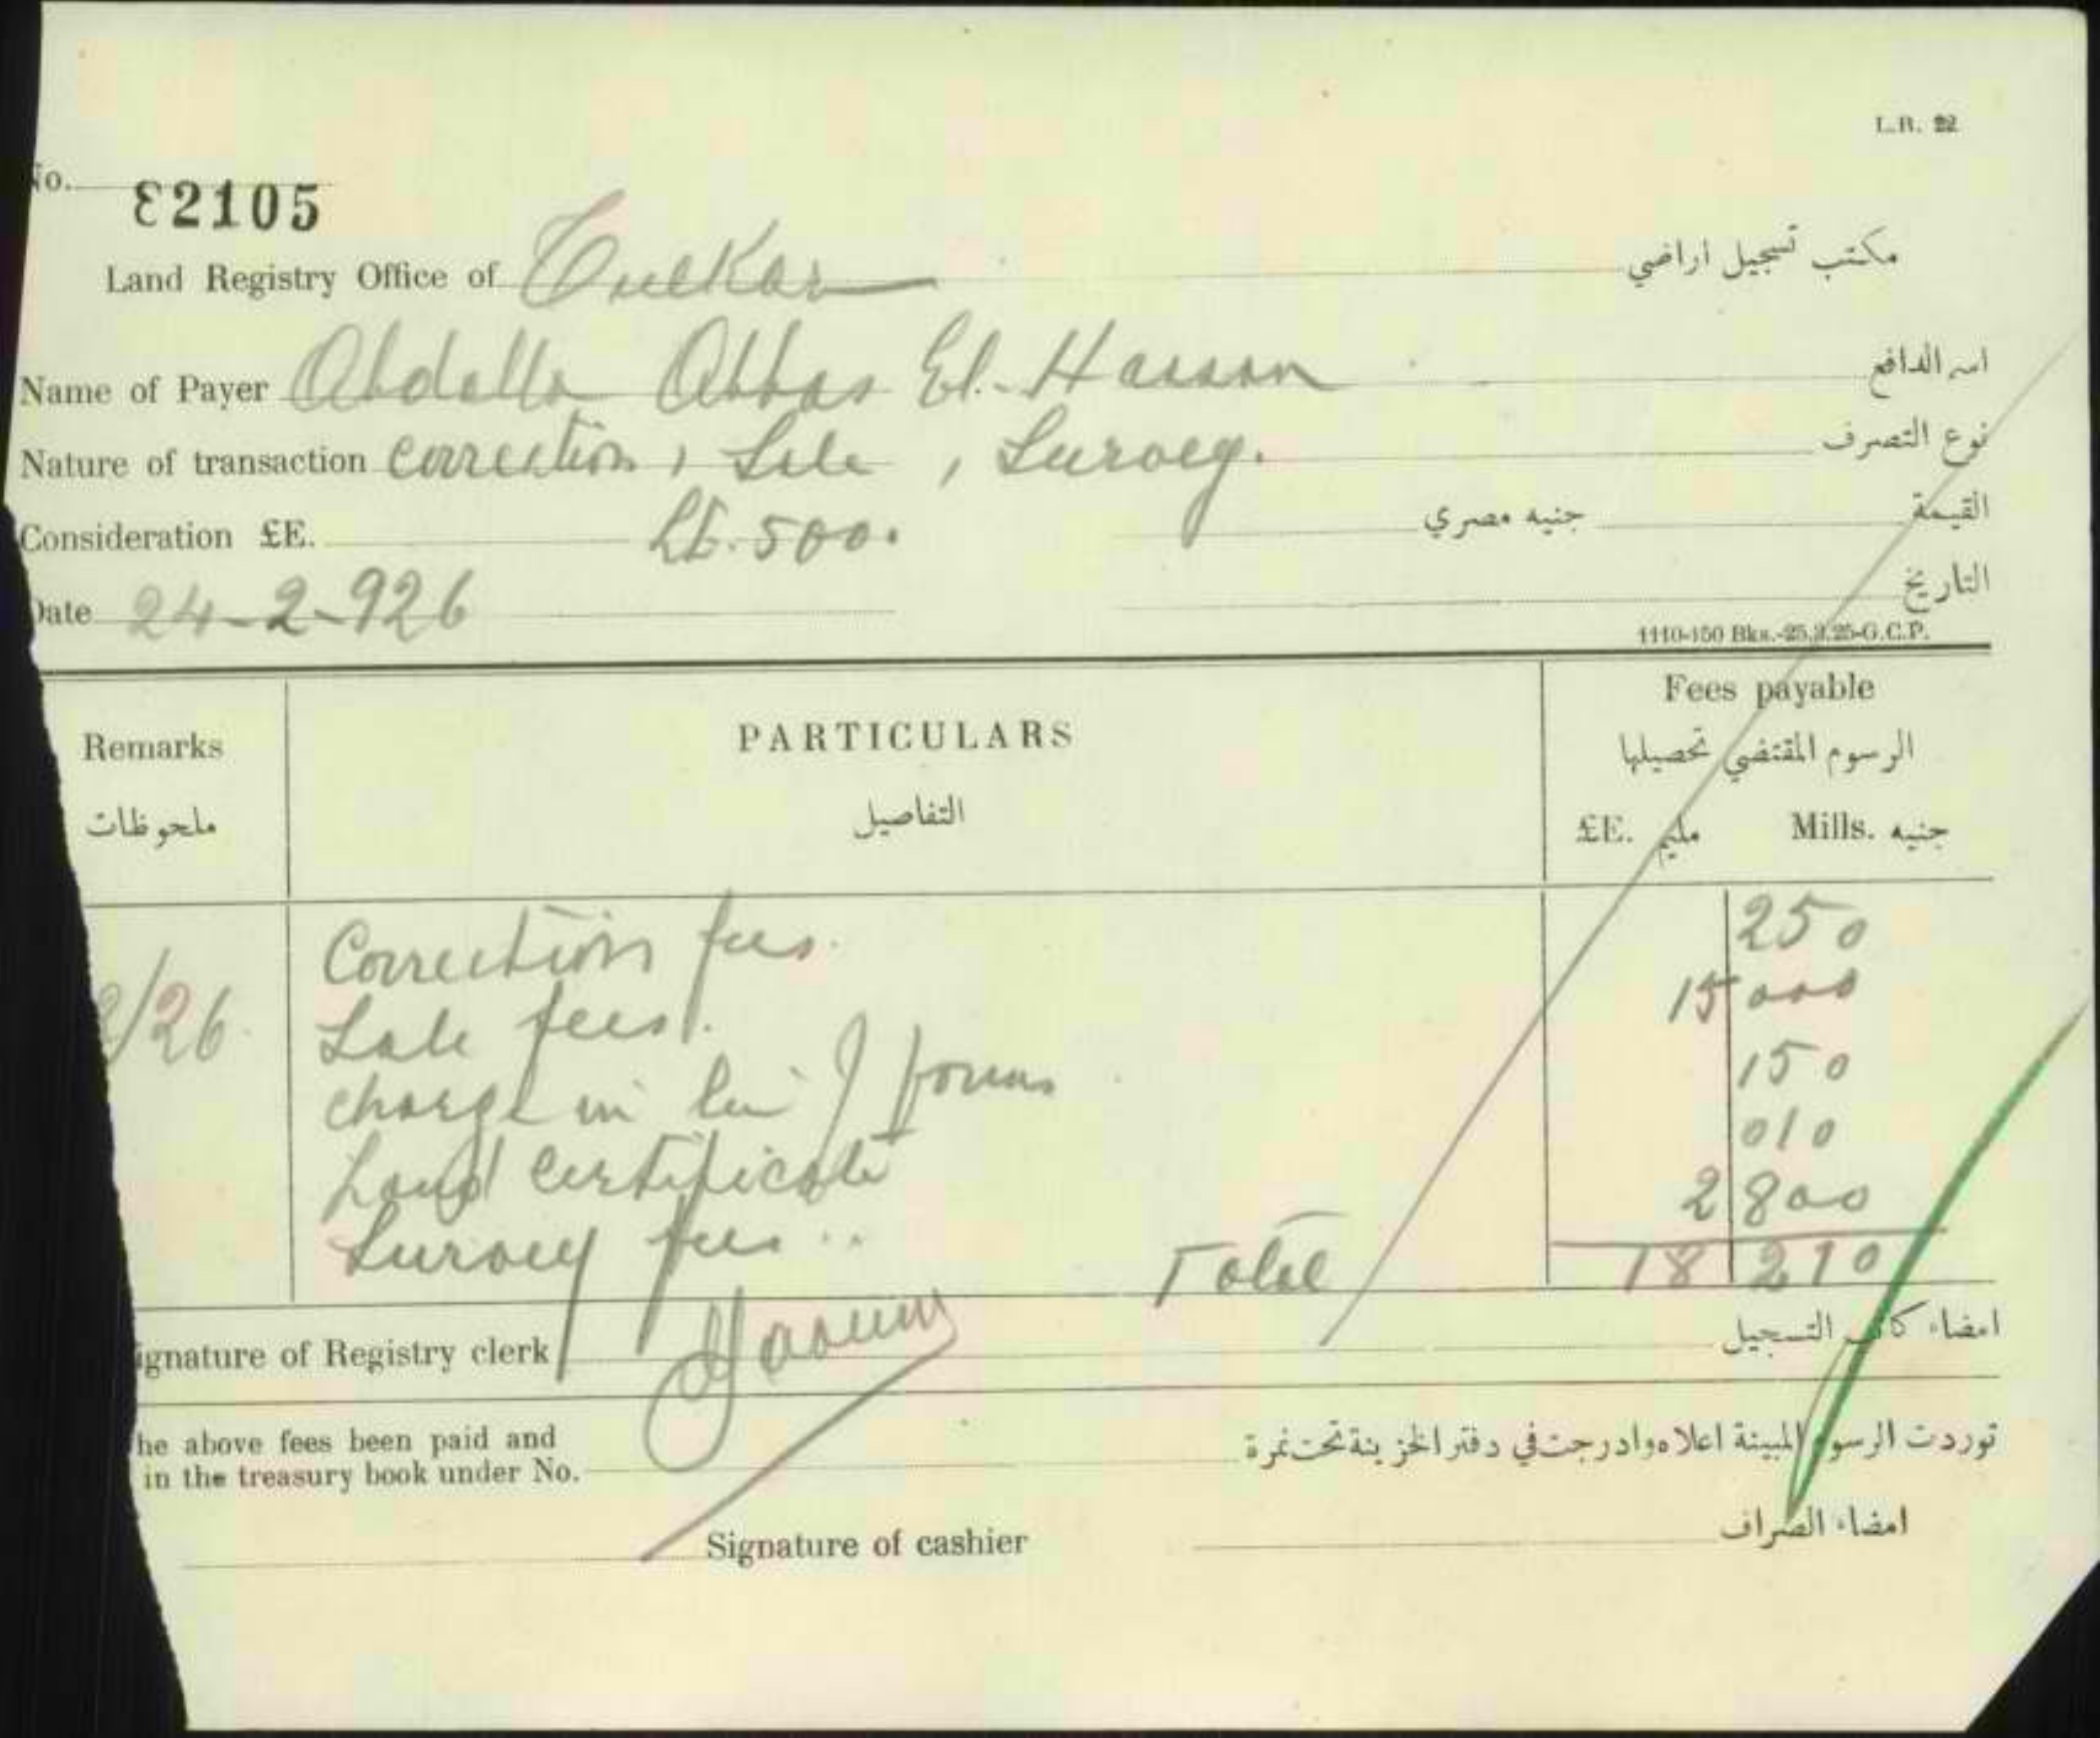 L.R. 22
No. 82105
Land Registry Office of Tulkar مكتب تسجيل اراضي
Name of Payer Abdalla Abbas El-Hassan اسم الدافع
Nature of transaction correction, Sale, Survey. نوع التصرف
Consideration £E. LE. 500. جنيه مصري القيمة
Date 24-2-926 التاريخ
1110-150 Bks.-25.3.25-G.C.P.
Remarks PARTICULARS Fees payable
ملحوظات التفاصيل الرسوم المقتضي تحصيلها
£E. مليم Mills. جنيه
Correction fees. 250
2/26. Sale fees. 15 000
charge in lieu of forms 150
Land certificate 010
Survey fees.. 2 800
Total 18 210
ignature of Registry clerk امضاء كاتب التسجيل
he above fees been paid and
in the treasury book under No. توردت الرسوم المبينة اعلاه وادرجت في دفتر الخزينة تحت نمرة
Signature of cashier امضاء الصراف